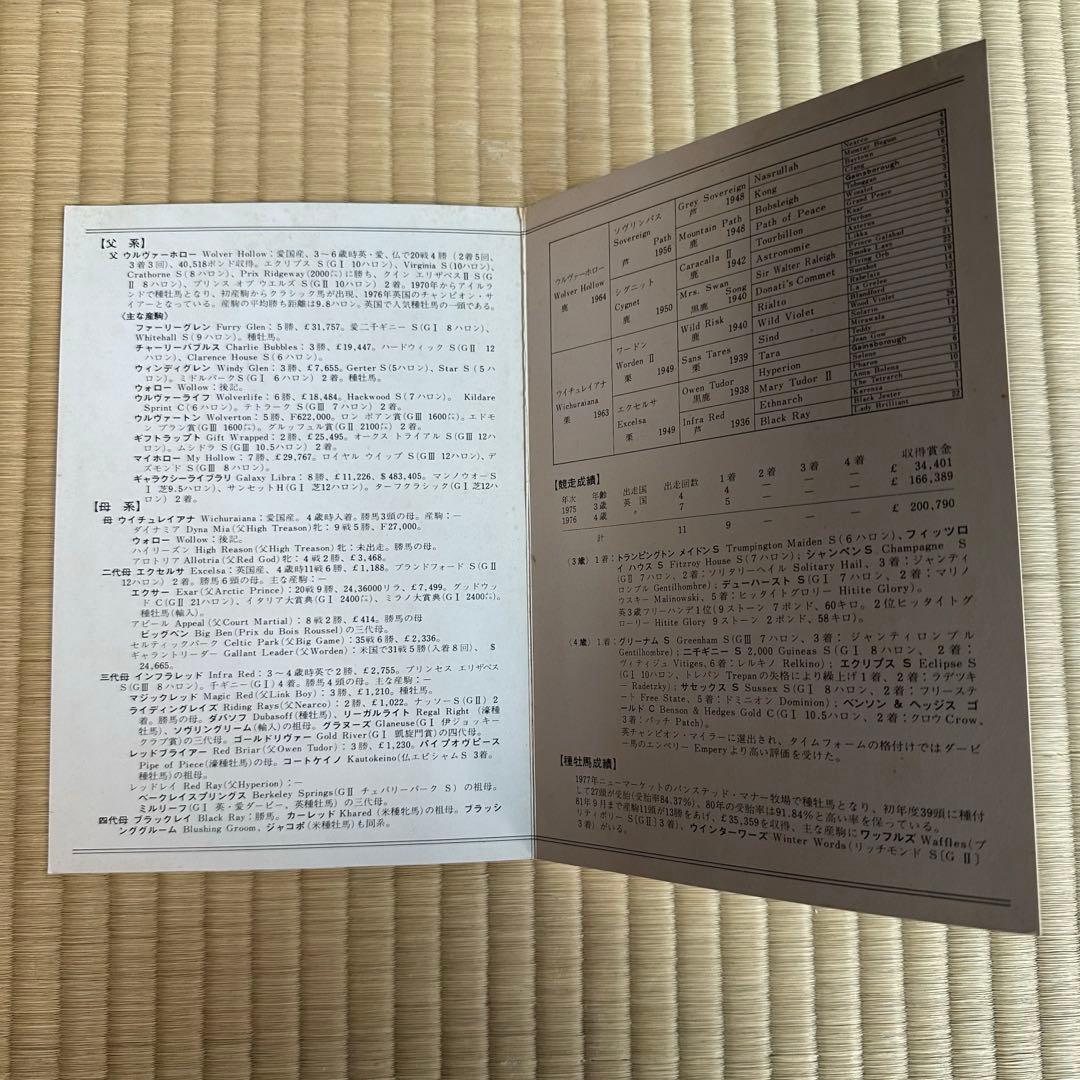 【父 系】
父 ウルヴァーホロー Wolver Hollow：愛国産、3〜6歳時英・愛、仏で20戦4勝（2着5回、
3着3回）、40,518ポンド収得。エクリプス S（GⅠ 10ハロン）、Virginia S（10ハロン）、
Crathorne S（8ハロン）、Prix Ridgeway（2000㍍）に勝ち、クイン エリザベスⅡ S（G
Ⅱ 8ハロン）、プリンス オブ ウエルズ S（GⅡ 10ハロン）2着。1970年からアイルラ
ンドで種牡馬となり、初産駒からクラシック馬が出現、1976年英国のチャンピオン・サ
イアーとなっている。産駒の平均勝ち距離は9.8ハロン。英国で人気種牡馬の一頭である。
〈主な産駒〉
ファーリーグレン Furry Glen：5勝、£31,757。愛二千ギニー S（GⅠ 8ハロン）、
Whitehall S（9ハロン）。種牡馬。
チャーリーバブルス Charlie Bubbles：3勝、£19,447。ハードウィック S（GⅡ 12
ハロン）、Clarence House S（6ハロン）。
ウィンディグレン Windy Glen：3勝、£7,655。Gerter S（5ハロン）、Star S（5ハ
ロン）。ミドルパークS（GⅠ 6ハロン）2着。種牡馬。
ウォロー Wollow：後記。
ウルヴァーライフ Wolverlife：6勝、£18,484。Hackwood S（7ハロン）。Kildare
Sprint C（6ハロン）。テトラーク S（GⅢ 7ハロン）2着。
ウルヴァートン Wolverton：5勝、F622,000。ロン ポアン賞（GⅢ 1600㍍）。エドモ
ン ブラン賞（GⅢ 1600㍍）。グルッフュル賞（GⅡ 2100㍍）2着。
ギフトラップト Gift Wrapped：2勝、£25,495。オークス トライアル S（GⅢ 12ハ
ロン）。ムシドラ S（GⅢ 10.5ハロン）2着。
マイホロー My Hollow：7勝、£29,767。ロイヤル ウイップ S（GⅢ 12ハロン）、デ
ズモンド S（GⅢ 8ハロン）。
ギャラクシーライブラ Galaxy Libra：8勝、£11,226、$483,405。マンノウォーS（G
Ⅰ 芝9.5ハロン）、サンセットH（GⅠ 芝12ハロン）。ターフクラシック（GⅠ 芝12ハ
ロン）2着。
【母 系】
母 ウイチュレイアナ Wichuraiana：愛国産。4歳時入着。勝馬3頭の母。産駒：—
ダイナミア Dyna Mia（父High Treason）牝：9戦5勝、F27,000。
ウォロー Wollow：後記。
ハイリーズン High Reason（父High Treason）牝：未出走。勝馬の母。
アロトリア Allotria（父Red God）牝：4戦2勝、£3,468。
二代母 エクセルサ Excelsa：英国産、4歳時11戦6勝、£1,188。ブランドフォード S（GⅡ
12ハロン）2着。勝馬6頭の母。主な産駒：—
エクサー Exar（父Arctic Prince）：20戦9勝、24,36000リラ、£7,499。グッドウッ
ド C（GⅡ 21ハロン）、イタリア大賞典（GⅠ 2400㍍）、ミラノ大賞典（GⅠ 2400㍍）。
種牡馬（輸入）。
アピール Appeal（父Court Martial）：8戦2勝、£414。勝馬の母
ビッグベン Big Ben（Prix du Bois Roussel）の三代母。
セルティックパーク Celtic Park（父Big Game）：35戦6勝、£2,336。
ギャラントリーダー Gallant Leader（父Worden）：米国で31戦5勝（入着8回）、$
24,665。
三代母 インフラレッド Infra Red：3〜4歳時英で2勝、£2,755。プリンセス エリザベス
S（GⅢ 8ハロン）。千ギニー（GⅠ）4着。勝馬4頭の母。主な産駒：—
マジックレッド Magic Red（父Link Boy）：3勝、£1,210。種牡馬。
ライディングレイズ Riding Rays（父Nearco）：2勝、£1,022。ナッソーS（GⅡ）2
着。勝馬の母。ダバソフ Dubasoff（種牡馬）、リーガルライト Regal Right（濠種
牡馬）、ソヴリングリーム（輸入）の祖母。グラヌーズ Glaneuse（GⅠ 伊ジョッキー
クラブ賞）の三代母。ゴールドリヴァー Gold River（GⅠ 凱旋門賞）の四代母。
レッドブライアー Red Briar（父Owen Tudor）：3勝、£1,230。パイプオヴピース
Pipe of Piece（濠種牡馬）の母。コートケイノ Kautokeino（仏エピシャムS 3着。
種牡馬）の祖母。
レッドレイ Red Ray（父Hyperion）：—
ベークレイスプリングス Berkeley Springs（GⅡ チェバリーパーク S）の祖母。
ミルリーフ（GⅠ 英・愛ダービー、英種牡馬）の三代母。
四代母 ブラックレイ Black Ray：勝馬。カーレッド Khared（米種牝馬）の祖母。ブラッシ
ンググルーム Blushing Groom、ジャコポ（米種牡馬）も同系。
ウルヴァーホロー
Wolver Hollow
鹿 1964
ウイチュレイアナ
Wichuraiana
栗 1963
ソヴリンパス
Sovereign Path
芦 1956
シグニット
Cygnet
鹿 1950
ワードン
Worden Ⅱ
栗 1949
エクセルサ
Excelsa
栗 1949
Grey Sovereign
芦 1948
Mountain Path
鹿 1948
Caracalla Ⅱ
鹿 1942
Mrs. Swan Song
黒鹿 1940
Wild Risk
鹿 1940
Sans Tares
栗 1939
Owen Tudor
黒鹿 1938
Infra Red
芦 1936
Nasrullah
Kong
Bobsleigh
Path of Peace
Tourbillon
Astronomie
Sir Walter Raleigh
Donati's Commet
Rialto
Wild Violet
Sind
Tara
Hyperion
Mary Tudor Ⅱ
Ethnarch
Black Ray
Nearco 4
Mumtaz Begum 9
Baytown 15
Clang 6
Gainsborough
Toboggan
Winalot
Grand Peace
Ksar
Durban
Asterus
Likka
Prince Galahad
Smoke Lass
Flying Orb
Sunshot
Rabelais
La Grelee
Blandford
Wood Violet
Solario
Mirawala
Teddy
Jean Gow
Gainsborough
Selene
Pharos
Anna Bolena
The Tetrarch
Karenza
Black Jester
Lady Brilliant 22
【競走成績】
年次 年齢 出走国 出走回数 1着 2着 3着 4着 収得賞金
1975 3歳 英 国 4 4 — — — £ 34,401
1976 4歳 〃 7 5 — — — £ 166,389
計 11 9 — — — £ 200,790
（3歳）1着：トランピングトン メイドンS Trumpington Maiden S（6ハロン）、フィッツロ
イ ハウス S Fitzroy House S（7ハロン）；シャンペンS Champagne S
（GⅡ 7ハロン、2着：ソリタリーヘイル Solitary Hail、3着：ジャンティ
ロンブル Gentilhombre）；デューハースト S（GⅠ 7ハロン、2着：マリノ
ウスキー Malinowski、5着：ヒッタイトグロリー Hitite Glory）。
英3歳フリーハンデ1位（9ストーン 7ポンド、60キロ。2位ヒッタイトグ
ローリー Hitite Glory 9ストーン 2ポンド、58キロ）。
（4歳）1着：グリーナム S Greenham S（GⅢ 7ハロン、3着：ジャンティロンブル
Gentilhombre）；二千ギニー S 2,000 Guineas S（GⅠ 8ハロン、2着：
ヴィティジュ Vitiges、6着：レルキノ Relkino）；エクリプス S Eclipse S
（GⅠ 10ハロン、トレパン Trepanの失格により繰上げ1着、2着：ラデツキ
ー Radetzky）；サセックス S Sussex S（GⅠ 8ハロン、2着：フリーステ
ート Free State、5着：ドミニオン Dominion）；ベンソン & ヘッジス ゴ
ールド C Benson & Hedges Gold C（GⅠ 10.5ハロン、2着：クロウ Crow、
3着：パッチ Patch）。
英チャンピオン・マイラーに選出され、タイムフォームの格付けではダービ
ー馬のエンペリー Emperyより高い評価を受けた。
【種牡馬成績】
1977年ニューマーケットのバンステッド・マナー牧場で種牡馬となり、初年度39頭に種付
して27頭が受胎（受胎率84.37％）、80年の受胎率は91.84％と高い率を保っている。
81年9月まで産駒11頭が13勝をあげ、£35,359を収得、主な産駒にワッフルズ Waffles（プ
リティポリー S〔GⅡ〕3着）、ウインターワーズ Winter Words（リッチモンド S〔GⅡ〕
3着）がいる。